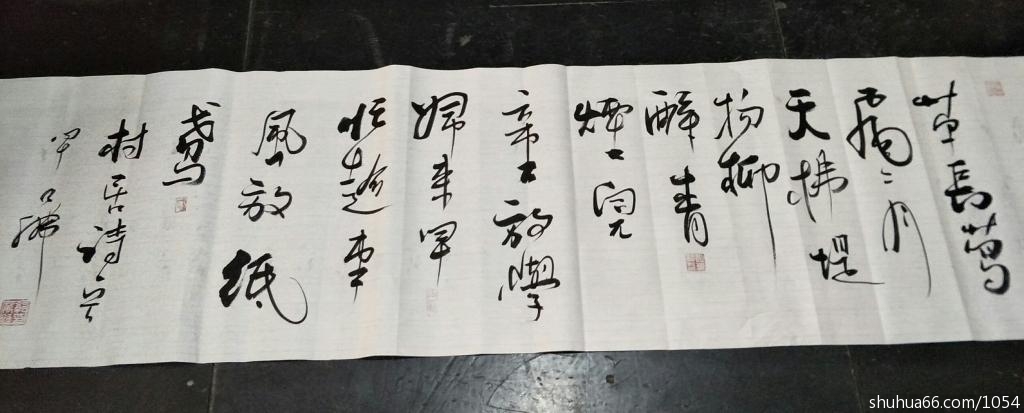 草長鶯
飛二月
天拂堤
楊柳
醉青
煙兒
童放學
歸來早
忙趁東
風放紙
鳶
村居詩一首
shuhua66.com/1054